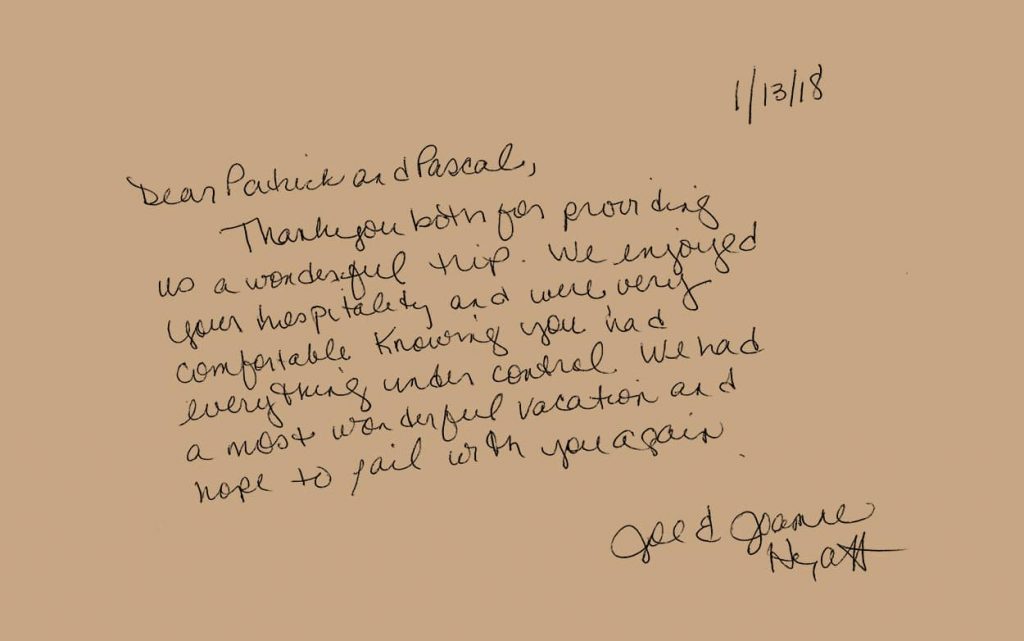 1/13/18
Dear Patrick and Pascal,
Thank you both for providing
us a wonderful trip. We enjoyed
your hospitality and were very
comfortable knowing you had
everything under control. We had
a most wonderful vacation and
hope to sail with you again.
Joe & Joanne
Hyatt